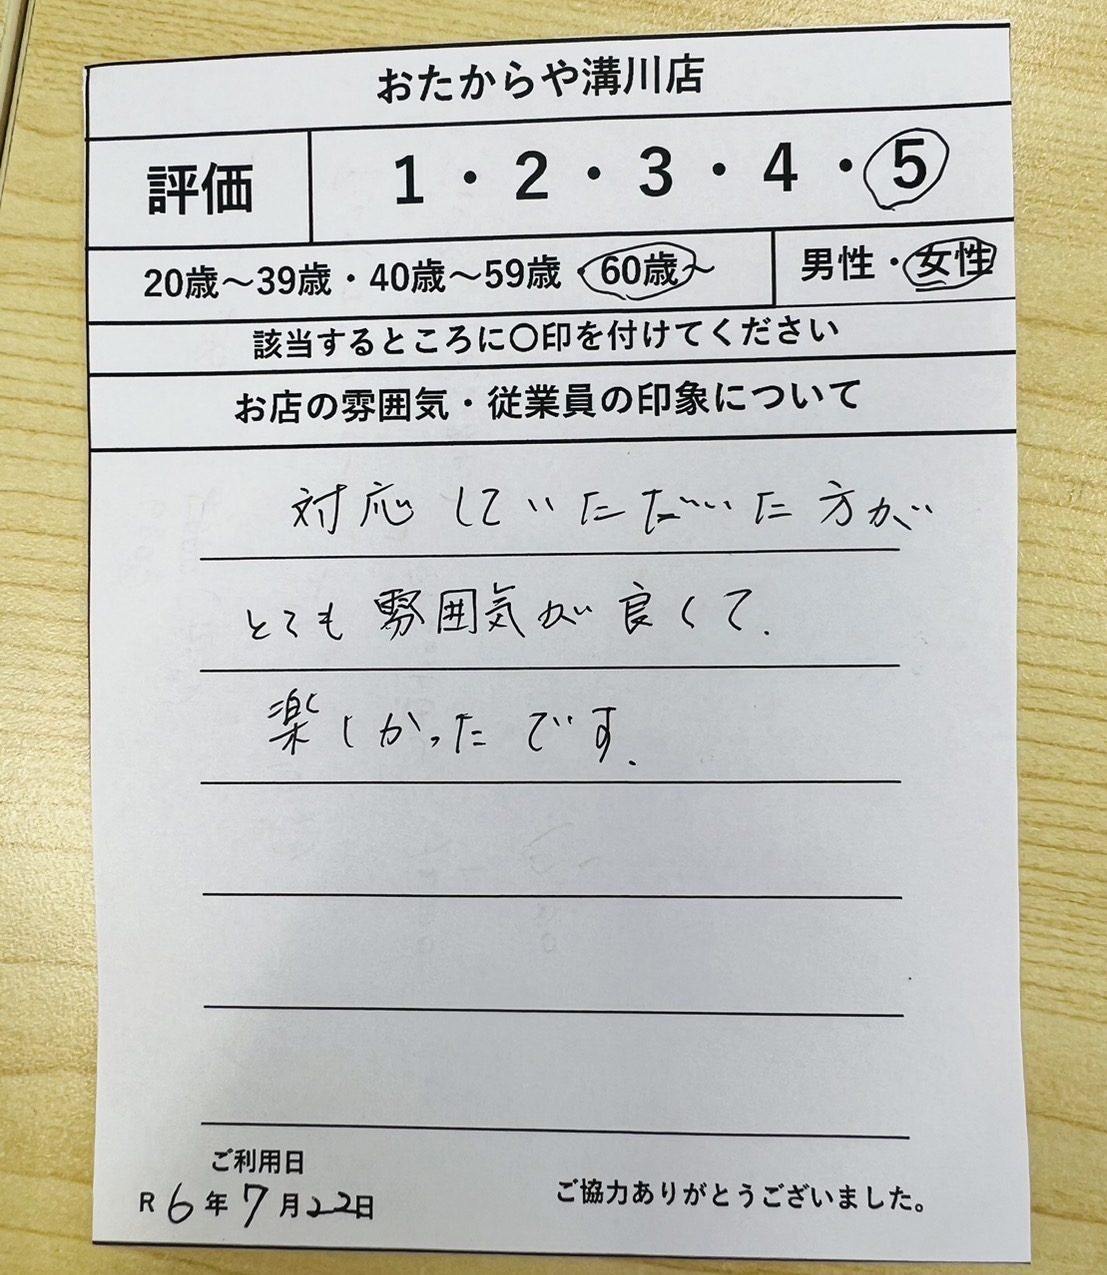 おたからや溝川店
評価
1・2・3・4・5
20歳～39歳・40歳～59歳・60歳～
男性・女性
該当するところに〇印を付けてください
お店の雰囲気・従業員の印象について
対応していただいた方が
とても雰囲気が良くて.
楽しかったです.
ご利用日
R6年7月22日
ご協力ありがとうございました。